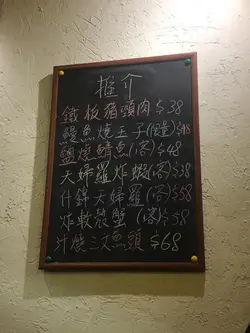 推介
鐵板豬頸肉 $38
鰻魚燒玉子(限量) $48
鹽燒鯖魚(客) $48
天婦羅炸蝦(客) $38
什錦天婦羅(客) $58
炸軟殼蟹(客) $58
汁燒三文魚頭 $68